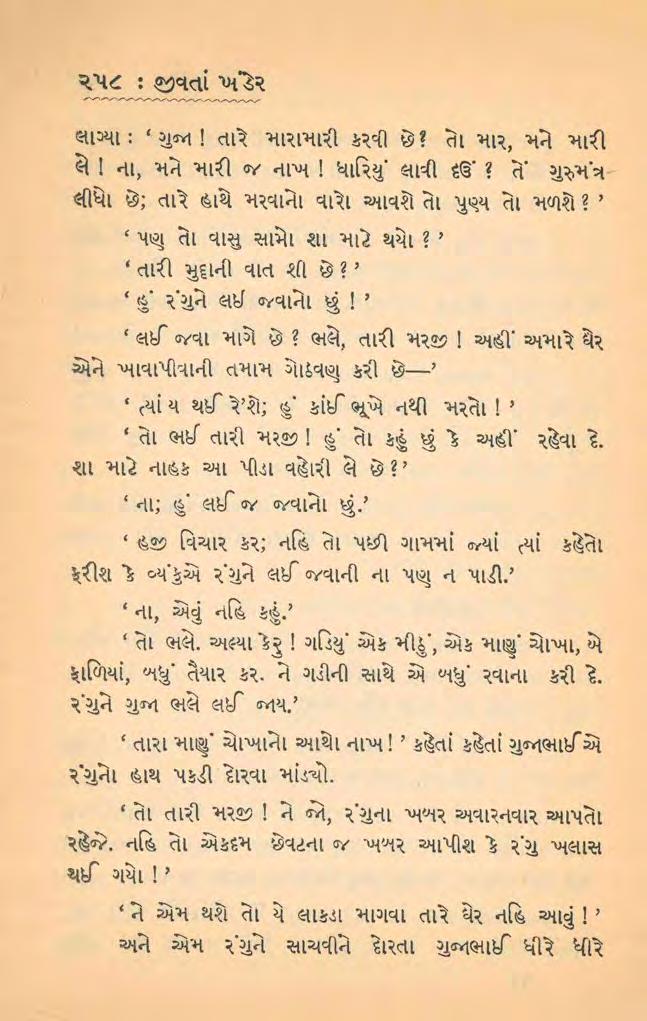 ૨૫૮ : જીવતાં ખંડેર
લાગ્યા : ‘ ગુજા ! તારે મારામારી કરવી છે? તો માર, મને મારી
લે ! ના, મને મારી જ નાખ ! ધારિયું લાવી દઉં ? તેં ગુરુમંત્ર
લીધો છે; તારે હાથે મરવાનો વારો આવશે તો પુણ્ય તો મળશે ? ’
‘ પણ તો વાસુ સામો શા માટે થયો ? ’
‘ તારી મુદ્દાની વાત શી છે ? ’
‘ હું રંગુને લઈ જવાનો છું ! ’
‘ લઈ જવા માગે છે ? ભલે, તારી મરજી ! અહીં અમારે ઘેર
એને ખાવાપીવાની તમામ ગોઠવણ કરી છે—’
‘ ત્યાં ય થઈ રે’શે; હું કાંઈ ભૂખે નથી મરતો ! ’
‘ તો ભઈ તારી મરજી ! હું તો કહું છું કે અહીં રહેવા દે.
શા માટે નાહક આ પીડા વહોરી લે છે ? ’
‘ ના; હું લઈ જ જવાનો છું.’
‘ હજી વિચાર કર; નહિ તો પછી ગામમાં જ્યાં ત્યાં કહેતો
ફરીશ કે વ્યંકુએ રંગુને લઈ જવાની ના પણ ન પાડી.’
‘ ના, એવું નહિ કહું.’
‘ તો ભલે. અલ્યા કેરુ ! ગડિયું એક મીઠું, એક માણું ચોખા, બે
ફાળિયાં, બધું તૈયાર કર. ને ગડીની સાથે એ બધું રવાના કરી દે.
રંગુને ગુજા ભલે લઈ જાય.’
‘ તારા માણું ચોખાનો આથો નાખ ! ’ કહેતાં કહેતાં ગુજાભાઈએ
રંગુનો હાથ પકડી દોરવા માંડ્યો.
‘ તો તારી મરજી ! ને જો, રંગુના ખબર અવારનવાર આપતો
રહેજે. નહિ તો એકદમ છેવટના જ ખબર આપીશ કે રંગુ ખલાસ
થઈ ગયો ! ’
‘ ને એમ થશે તો યે લાકડા માગવા તારે ઘેર નહિ આવું ! ’
અને એમ રંગુને સાચવીને દોરતા ગુજાભાઈ ધીરે ધીરે